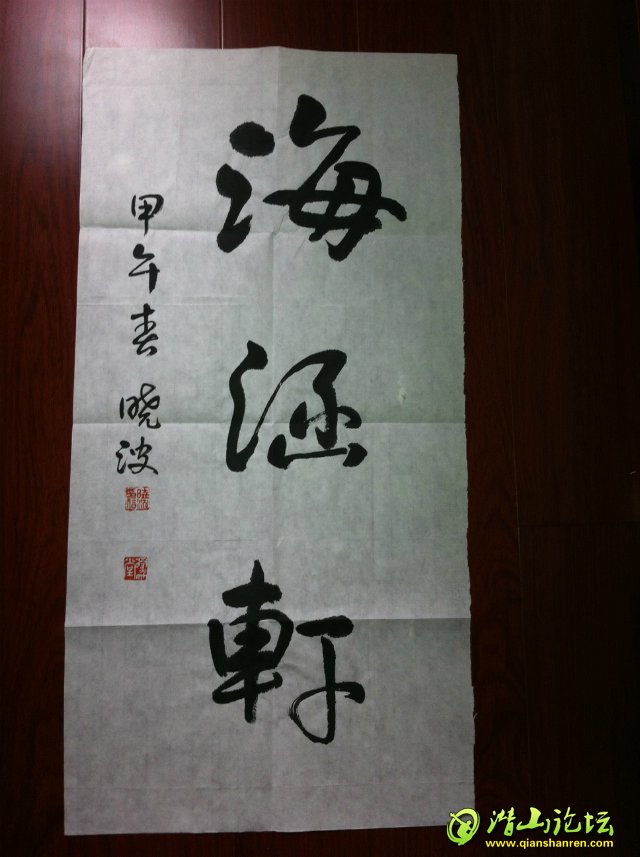 海涵軒
甲午春 晓波
潜山论坛
www.qianshanren.com